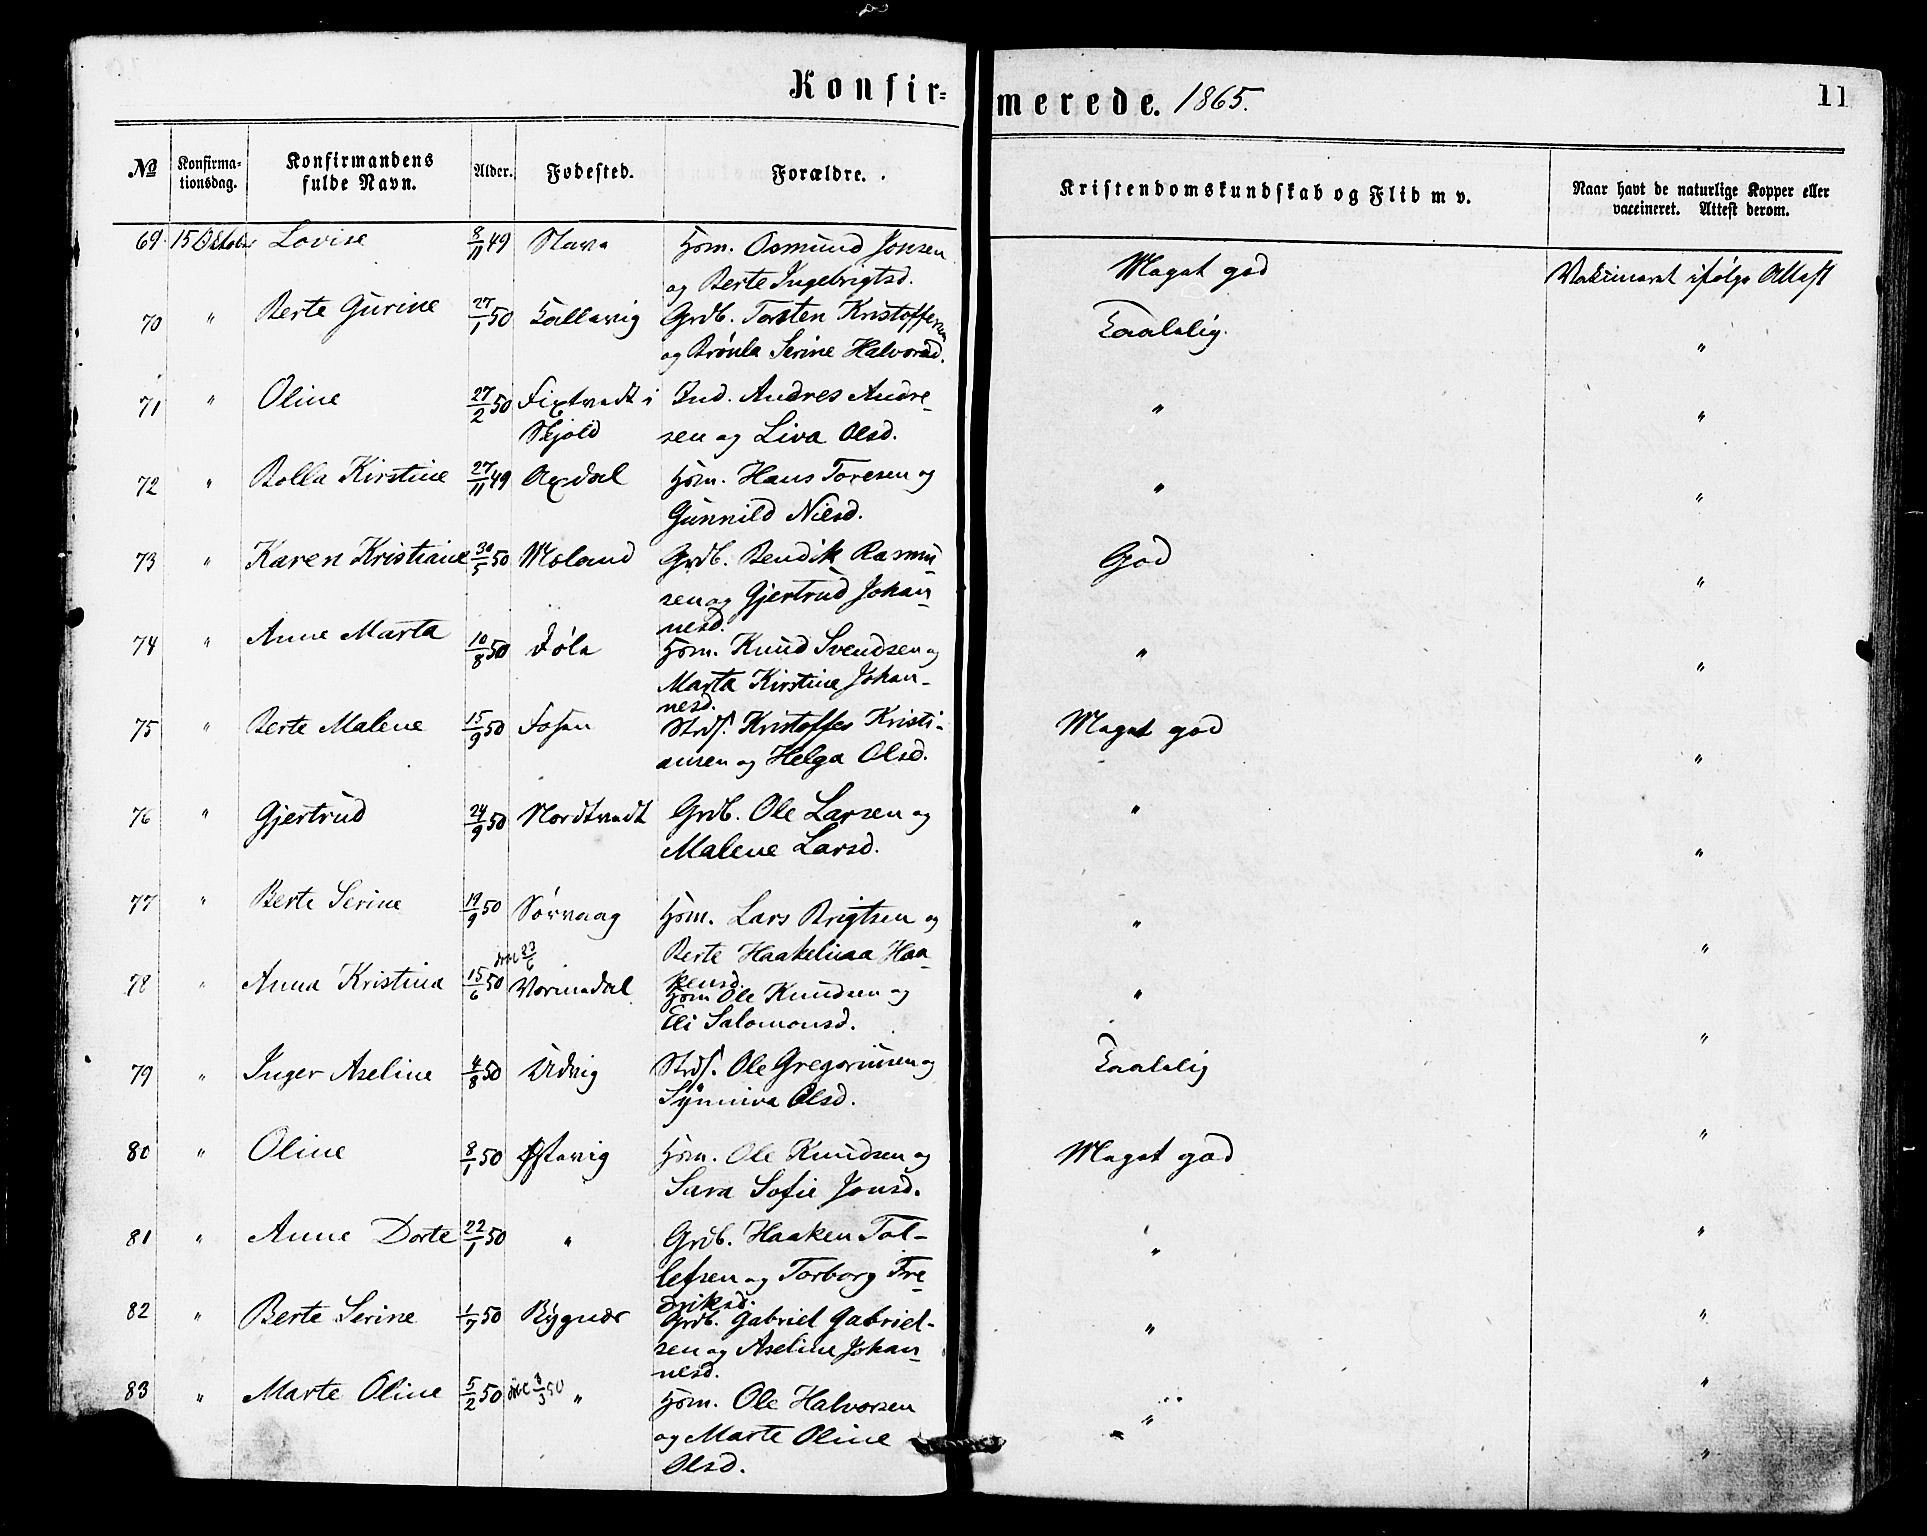 Konfir=merede. 1865. 11
No Konfirma-tionsdag. Konfirmandens fulde Navn. Alder. Fødested. Forældre. Kristendomskundskab og Flid m v. Naar havt de naturlige Kopper eller vaccineret. Attest derom.
69 15 Oktober Lovise 8/11 49 Stava Hsm. Osmund Jonsen Meget god Vaksineret ifølge Attest
og Berte Ingebrigtsd.
70 " Berte Gurine 27/1 50 Kallevig Grdb. Torsten Kristoffersen Taalelig. "
og Brønla Serine Halvorsd.
71 " Oline 27/2 50 Fixtvedt i Ind. Andres Andre- " "
Skjold sen og Liva Olsd.
72 " Bolla Kirstine 27/11 49 Axdal Hsm. Hans Toresen og " "
Gunnild Nilsd.
73 " Karen Kristiane 30/5 50 Moland Grdb. Bendik Rasmu- God "
sen og Gjertrud Johan-
nesd.
74 " Anne Marta 10/8 50 Døle Hsm. Knud Svendsen og " "
Marta Kirstine Johan-
nesd.
75 " Berte Malene 15/9 50 Fosen Strds. Kristoffer Kristi- Meget god "
ansen og Helga Olsd.
76 " Gjertrud 24/9 50 Nordtvedt Grdb. Ole Larsen og " "
Malene Larsd.
77 " Berte Serine 19/9 50 Sørvaag Hsm. Lars Brigtsen og " "
Berte Haakelinaa Haa-
kensd.
78 " Anna Kristina 15/6 50 23/6 Vormedal Hsm Ole Knudsen og " "
Eli Salomonsd.
79 " Inger Aseline 4/8 50 Udvig Strds. Ole Gregoriusen og Taalelig "
Synniva Olsd.
80 " Oline 8/1 50 Østevig Hsm. Ole Knudsen og Meget god "
Sara Sofie Jonsd.
81 " Anne Dorte 22/1 50 " Grdb. Haaken Tol- " "
lefsen og Torborg Fre-
driksd.
82 " Berte Serine 1/7 50 Rygnær Grdb. Gabriel Gabriel- " "
sen og Aseline Johan-
nesd.
83 " Marte Oline 5/2 50 3/3 50 " Hsm. Ole Halvorsen " "
og Marte Oline
Olsd.